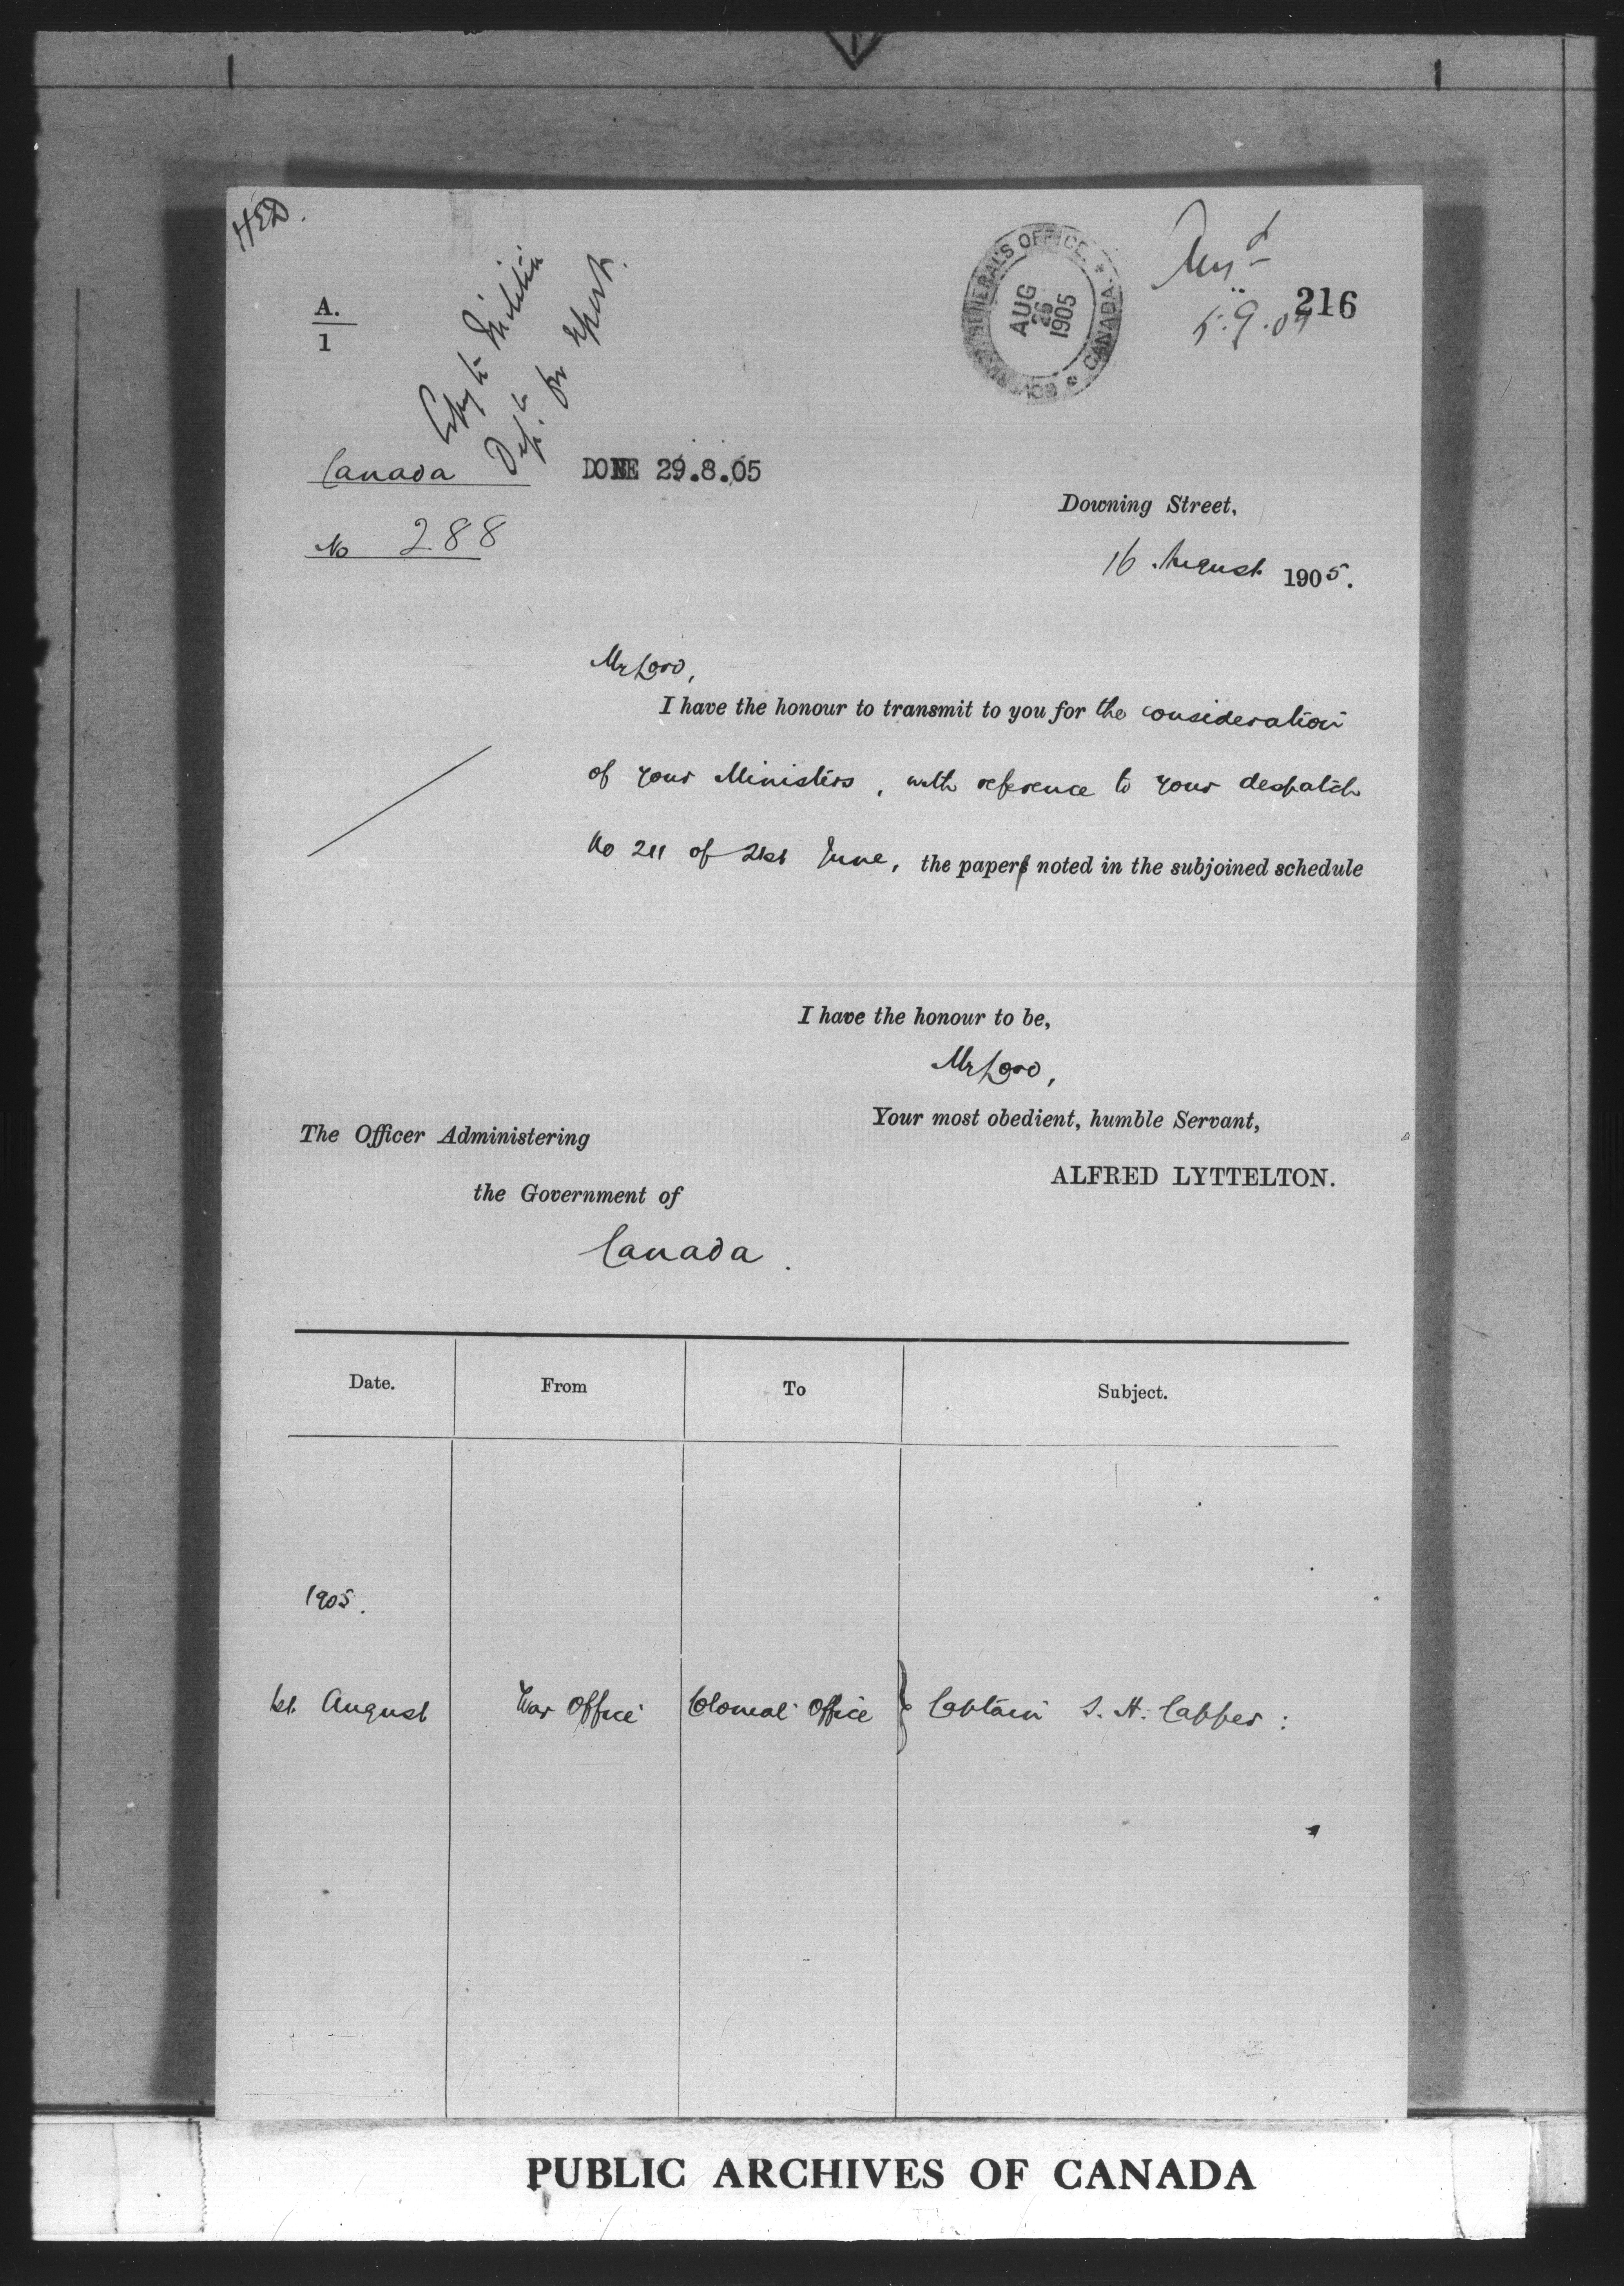 HED.
A.
1
Copy to Militia
Dept. for report.
GOVERNOR GENERAL'S OFFICE * CANADA *
AUG
26
1905
Ansd
5.9.05
216
Canada
DONE 29.8.05
No 288
Downing Street,
16 August 1905.
My Lord,
I have the honour to transmit to you for the consideration
of your Ministers, with reference to your despatch
No 211 of 21st June, the paper noted in the subjoined schedule
I have the honour to be,
My Lord,
Your most obedient, humble Servant,
ALFRED LYTTELTON.
The Officer Administering
the Government of
Canada.
Date. From To Subject.
1905.
1st August War Office Colonial Office } Captain S. H. Capper:
PUBLIC ARCHIVES OF CANADA